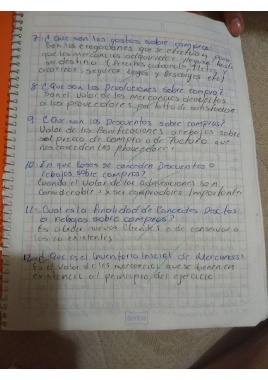 7- ¿Que son los gastos sobre compras?
Son las erogaciones que se efectuan para
que las mercancias adquiridas lleguen hasta
su destino (Derechos aduanales, fletes y
acarreos, seguros, cargas y descargas etc)
8- ¿Que son las Devoluciones sobre compra?
Son el valor de las mercancias devueltas
a los proveedores, por falta de satisfaccion
9- ¿Que son los Descuentos sobre compras?
Valor de las bonificaciones o rebajas sobre
el precio de compra o de factura que
nos conceden los proveedores
10- En que casos se conceden Descuentos o
rebajas sobre compras?
Cuando el valor de las adquisiciones son
considerable y x ser compradores importante
11- Cual es la finalidad de Conceder Desctos
o rebajas sobre compras?
Es nuevos clientes o de conservar a
los ya existentes
12- ¿Que es el Inventario Inicial de Mercancias?
Es el valor de las mercancias que se tienen en
existencia al principio del ejercicio